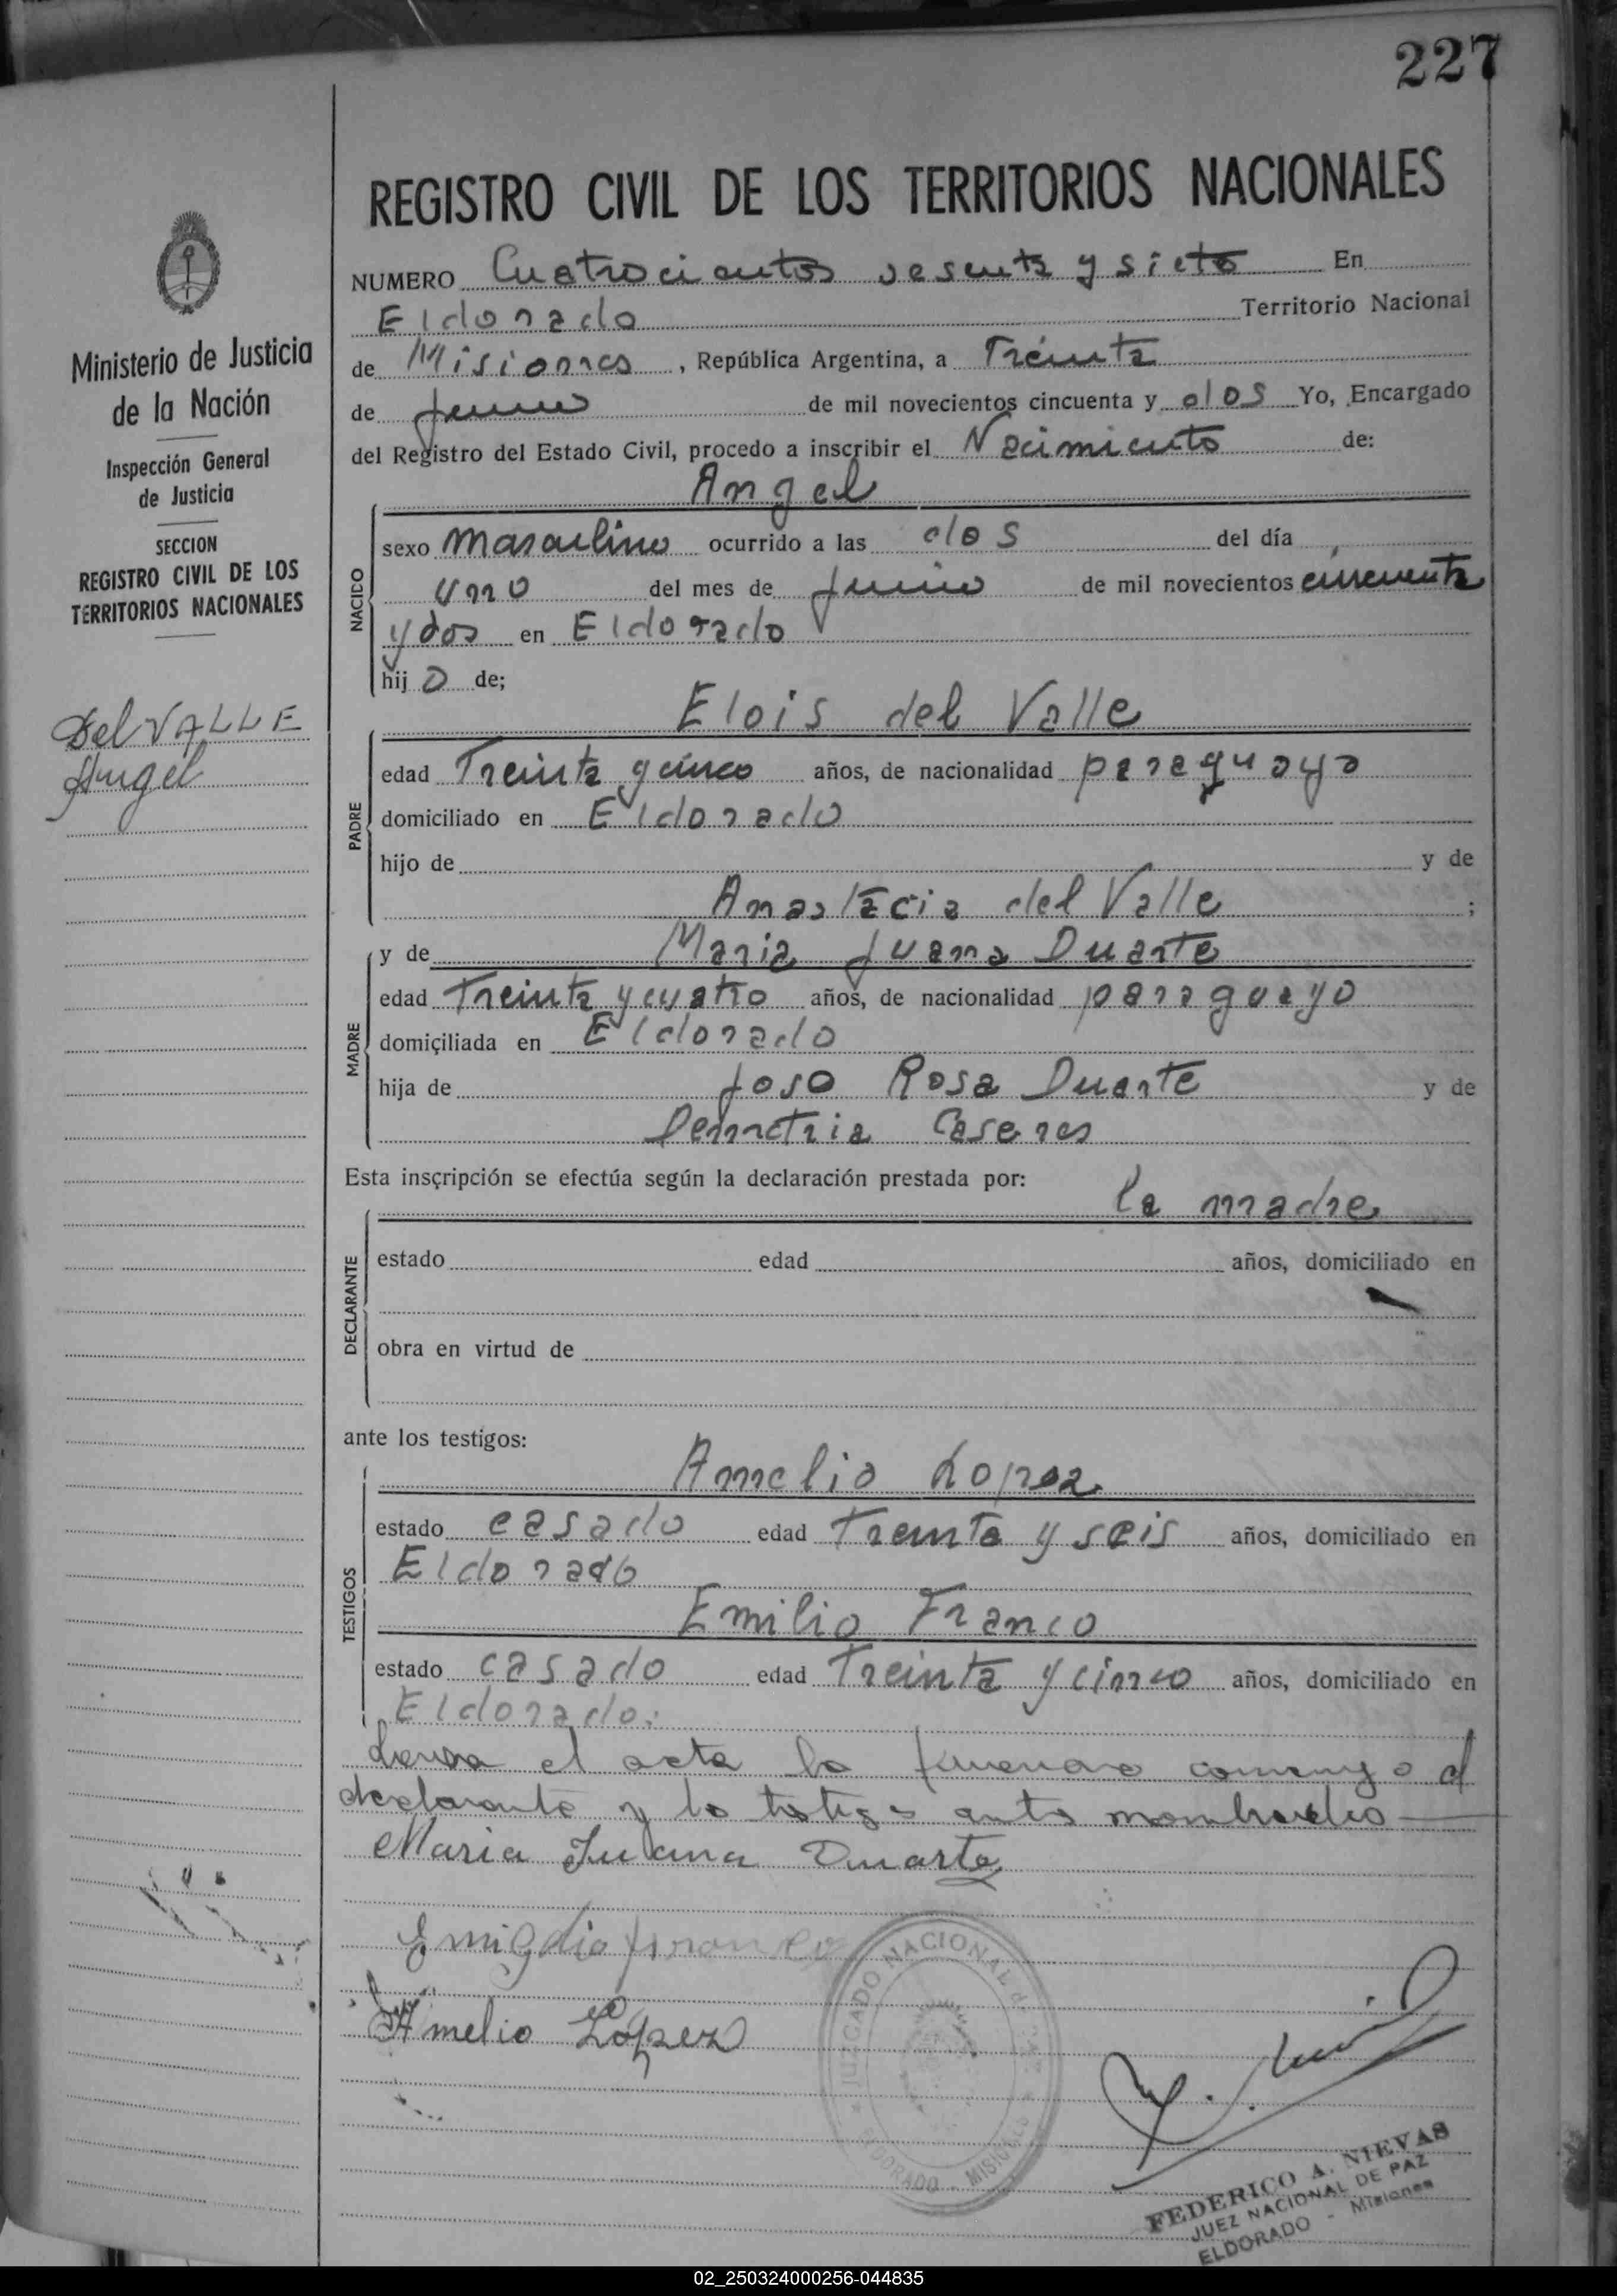 227
REGISTRO CIVIL DE LOS TERRITORIOS NACIONALES
Ministerio de Justicia
de la Nación
Inspección General
de Justicia
SECCION
REGISTRO CIVIL DE LOS
TERRITORIOS NACIONALES
Del VALLE
Angel
NUMERO Cuatrocientos sesenta y siete En
Eldorado Territorio Nacional
de Misiones, República Argentina, a Treinta
de Junio de mil novecientos cincuenta y dos Yo, Encargado
del Registro del Estado Civil, procedo a inscribir el Nacimiento de:
Angel
NACIDO
sexo masculino ocurrido a las dos del día
uno del mes de Junio de mil novecientos cincuenta
y dos en Eldorado
hijo de;
Elois del Valle
PADRE
edad Treinta y cinco años, de nacionalidad paraguayo
domiciliado en Eldorado
hijo de y de
Anastacia del Valle ;
y de Maria Juana Duarte
MADRE
edad Treinta y cuatro años, de nacionalidad paraguayo
domiciliada en Eldorado
hija de Joso Rosa Duarte y de
Demetria Caseres
Esta inscripción se efectúa según la declaración prestada por:
la madre
DECLARANTE
estado edad años, domiciliado en
obra en virtud de
ante los testigos:
Amelio Lopez
TESTIGOS
estado casado edad Treinta y seis años, domiciliado en
Eldorado
Emilio Franco
estado casado edad Treinta y cinco años, domiciliado en
Eldorado.
el acta la conmigo el
declarante y lo testigo
Maria Juana Duarte
Emigdio Franco
Amelio López
JUZGADO NACIONAL de PAZ
ELDORADO - MISIONES
FEDERICO A. NIEVAS
JUEZ NACIONAL DE PAZ
ELDORADO - Misiones
02_250324000256-044835